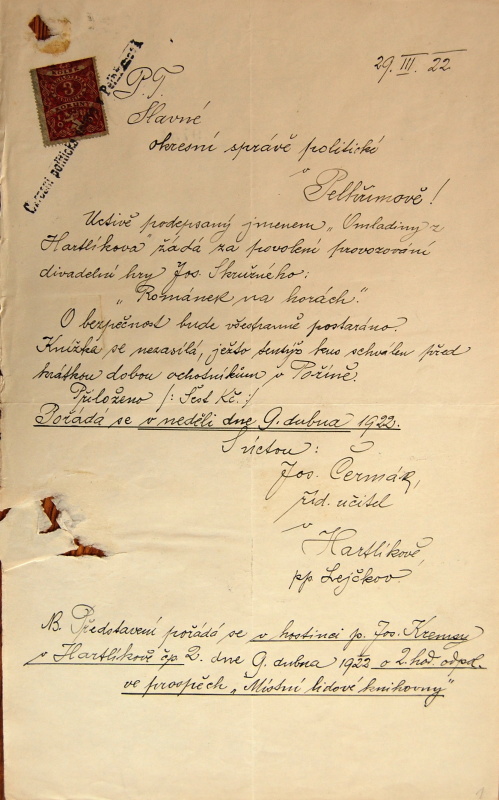 29. III. 22
P. T.
Slavné
okresní správě politické
v
Pelhřimově!
Uctivě podepsaný jmenem „Omladiny z
Hartlíkova" žádá za povolení provozování
divadelní hry Jos. Skružného:
„Románek na horách."
O bezpečnost bude všestranně postaráno.
Knížka se nezasílá, ježto tentýž kus schválen před
krátkou dobou ochotníkům v Pořině.
Přiloženo /: Šest Kč :/
Pořádá se v neděli dne 9. dubna 1922.
S úctou:
Jos. Čermák,
říd. učitel
v
Hartlíkově,
pp. Lejčkov.
NB. Představení pořádá se v hostinci p. Jos. Kremsy
v Hartlíkově čp 2. dne 9. dubna 1922 o 2. hod. odpol.
ve prospěch „Místní lidové knihovny"